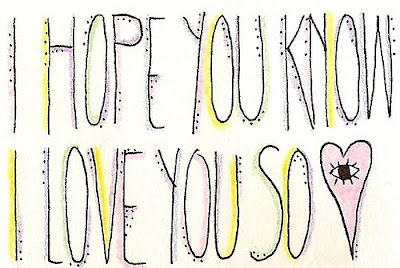 I HOPE YOU KNOW
I LOVE YOU SO